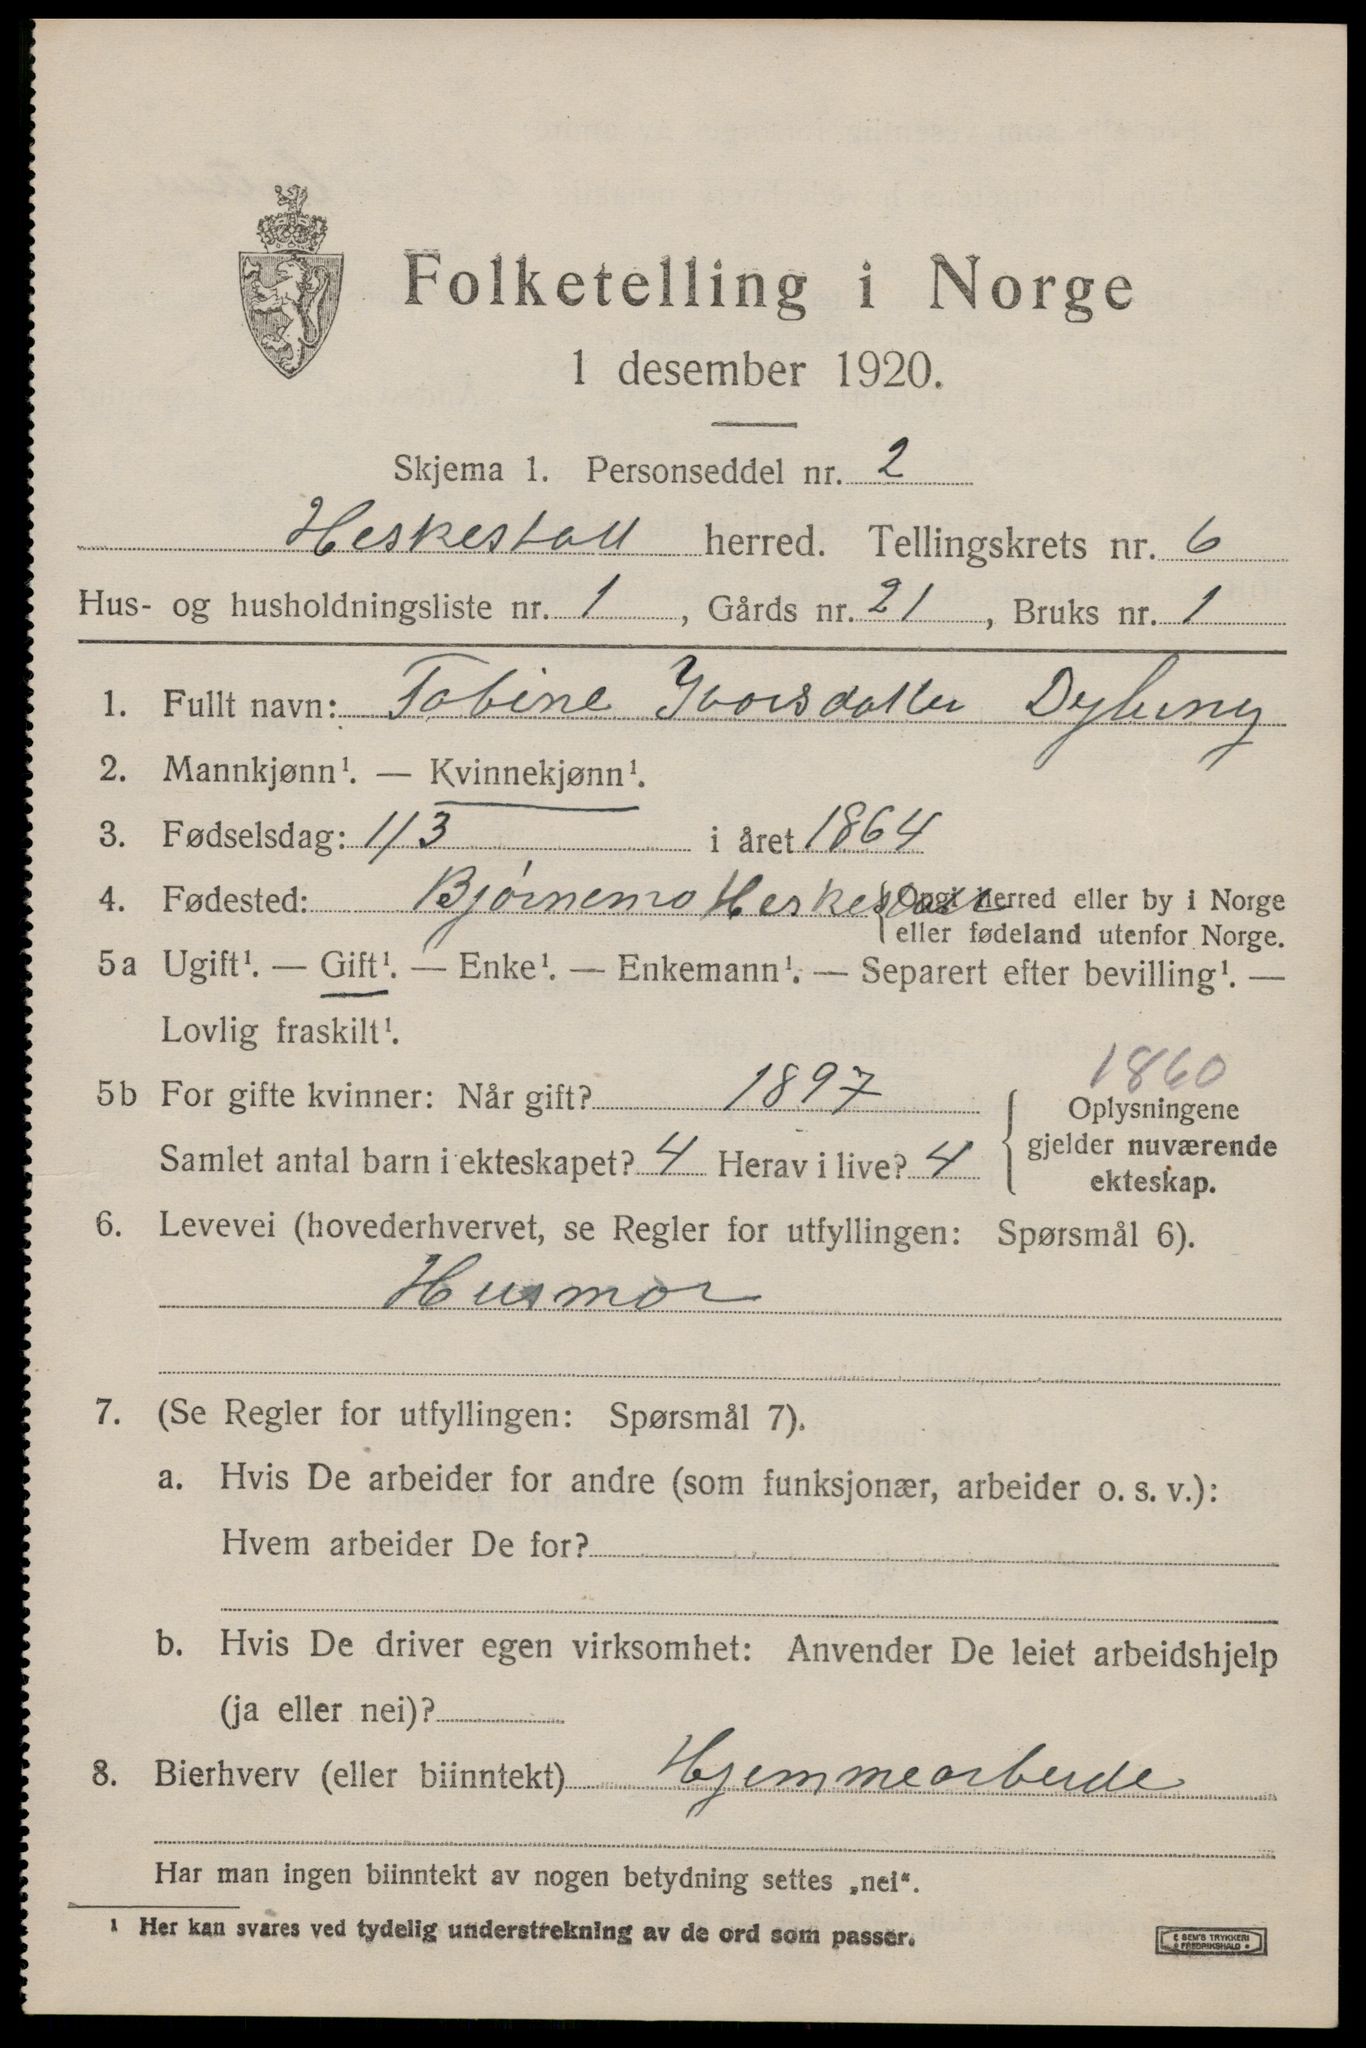 Folketelling i Norge
1 desember 1920.
Skjema 1. Personseddel nr. 2
Heskestad herred. Tellingskrets nr. 6
Hus- og husholdningsliste nr. 1, Gårds nr. 21, Bruks nr. 1
1. Fullt navn: Tobine Ivarsdatter Dybing
2. Mannkjønn¹. — Kvinnekjønn¹.
3. Fødselsdag: 1/3 i året 1864
4. Fødested: Bjørnemo Heskestad {Opgi herred eller by i Norge
eller fødeland utenfor Norge.
5a Ugift¹. — Gift¹. — Enke¹. — Enkemann¹. — Separert efter bevilling¹. —
Lovlig fraskilt¹.
1860
5b For gifte kvinner: Når gift? 1897 Oplysningene
Samlet antal barn i ekteskapet? 4 Herav i live? 4 gjelder nuværende
ekteskap.
6. Levevei (hovederhvervet, se Regler for utfyllingen: Spørsmål 6).
Husmor
7. (Se Regler for utfyllingen: Spørsmål 7).
a. Hvis De arbeider for andre (som funksjonær, arbeider o. s. v.):
Hvem arbeider De for?
b. Hvis De driver egen virksomhet: Anvender De leiet arbeidshjelp
(ja eller nei)?
8. Bierhverv (eller biinntekt) Hjemmearbeide
Har man ingen biinntekt av nogen betydning settes „nei".
¹ Her kan svares ved tydelig understrekning av de ord som passer.
E SEM'S TRYKKERI
FREDRIKSHALD